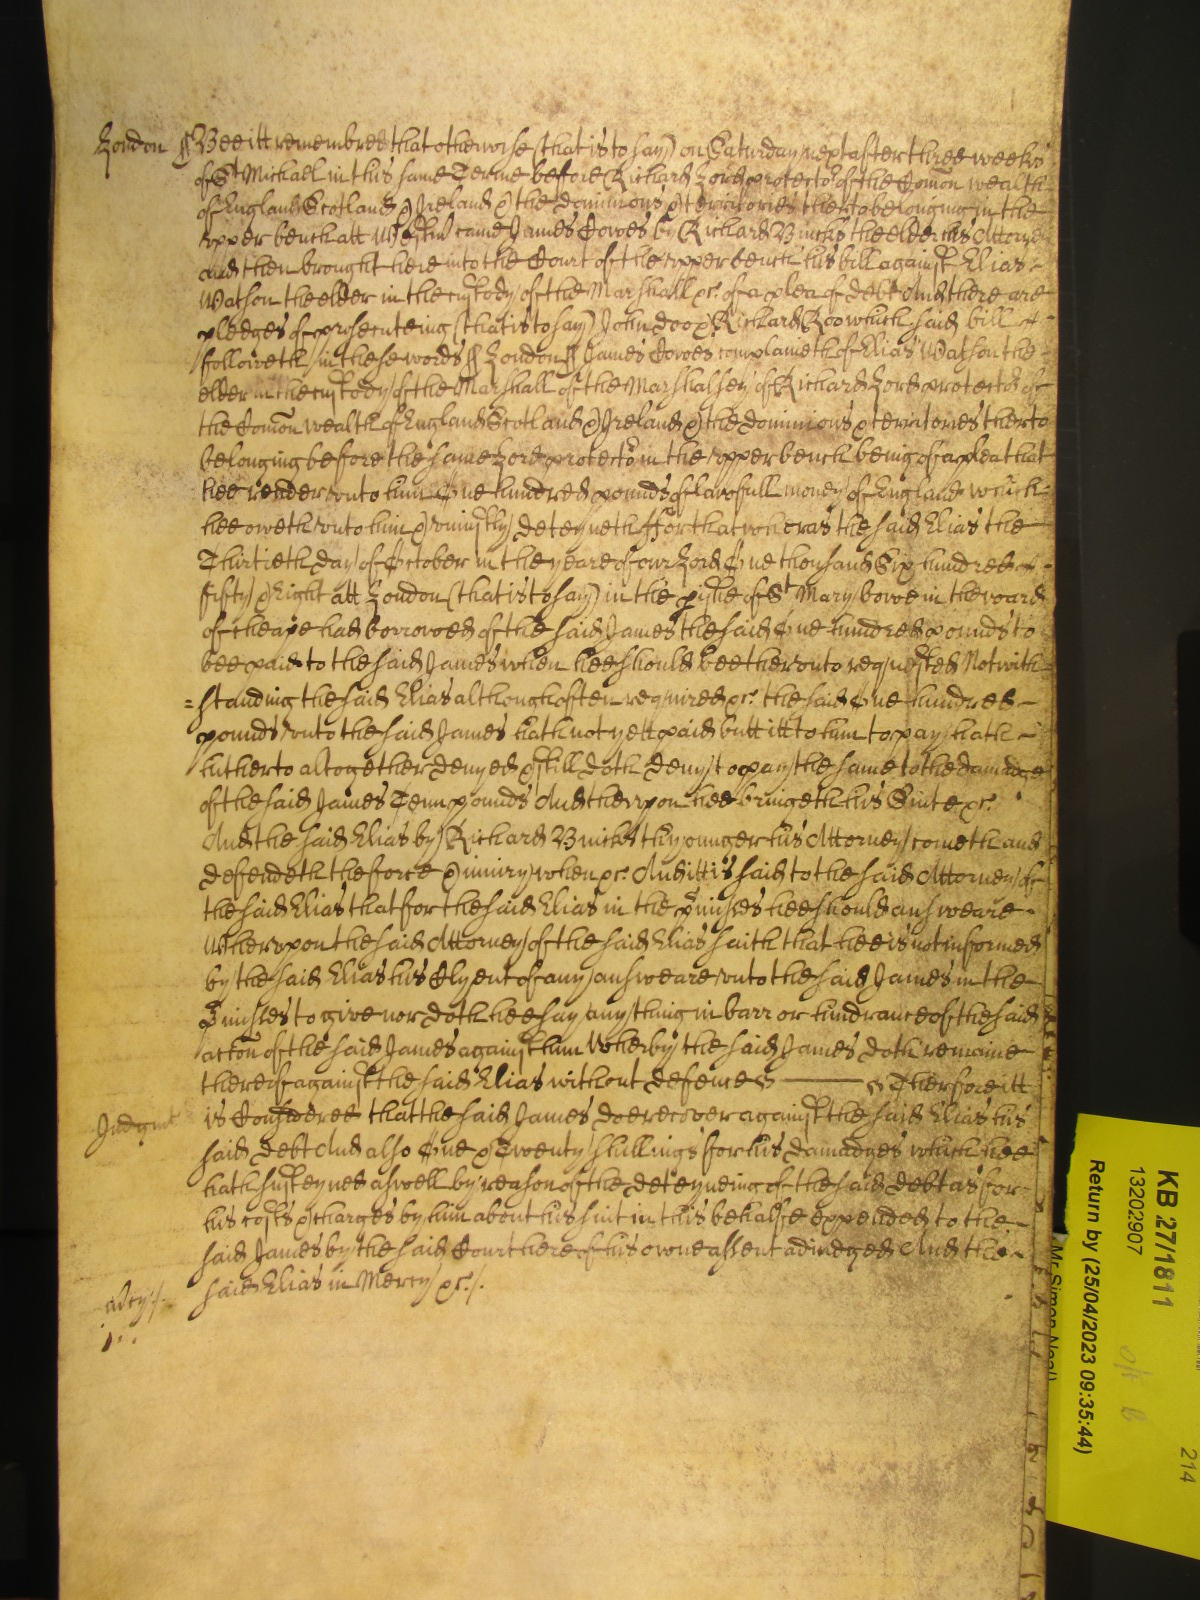 London ¶ Bee itt remembred that otherwise (that is to say) on Saturday next after three weekes
of St Michaell in this same Terme before Richard Lord protector of the Comon wealth
of England Scotland & Ireland & the dominions & territories therto belonging in the
vpper bench att Westm came James Cowes by Richard Bucks the elder his Attorny
and then brought here into the Court of the vpper bench his bill against Elias
Watson the elder in the custody of the Marshall &c. of a plea of debt And there are
pledges of prosecuteing (that is to say) John Doo & Richard Roo which said bill
followeth in these words ¶ London ¶ James Cowes complaineth of Elias Watson the
elder in the custody of the Marshall of the Marshalsey of Richard Lord protector of
the Comon wealth of England Scotland & Ireland & the dominions & territories therto
belonging before the same Lord protector in the vpper bench being of a plea that
hee render vnto him One hundred pounds of lawfull money of England which
hee oweth vnto him & vniustly deteyneth ffor that wheras the said Elias the
Thirtieth day of October in the yeare of our Lord One thousand Six hundred
fifty & eight att London (that is to say) in the pishe of St Mary bowe in the ward
of cheape had borrowed of the said James the said One hundred pounds to
bee paid to the said James when hee should bee thervnto requested Notwith
=standing the said Elias although often required &c. the said One hundred
pounds vnto the said James hath not yett paid butt itt to him to pay hath
hitherto altogether denyed & still doth deny to pay the same to the damadge
of the said James Tenn pounds And thervpon hee bringeth his Suite &c.
And the said Elias by Richard Bucks the younger his Attorney cometh and
defendeth the force & iniury when &c. And itt is said to the said Attorney of
the said Elias that for the said Elias in the pmisses hee should answeare
Whervpon the said Attorney of the said Elias saith that hee is not informed
by the said Elias his Clyent of any answeare vnto the said James in the
pmisses to give nor doth hee say any thing in barr or hindrance of the said
accon of the said James against him Wherby the said James doth remaine
thereof against the said Elias without defence Therfore itt
Judgmt is Considered that the said James doe recover against the said Elias his
said debt And also One & Twenty shillings for his damadges which hee
hath susteyned aswell by reason of the deteyneing of the said debt as for
his costs & charges by him about his suit in this behalfe expended to the
said James by the said Court here of his owne assent adiudged And the
said Elias in Mercy &c.
Mcy
KB 27/1811
13202907
Return by (25/04/2023 09:35:44)
214